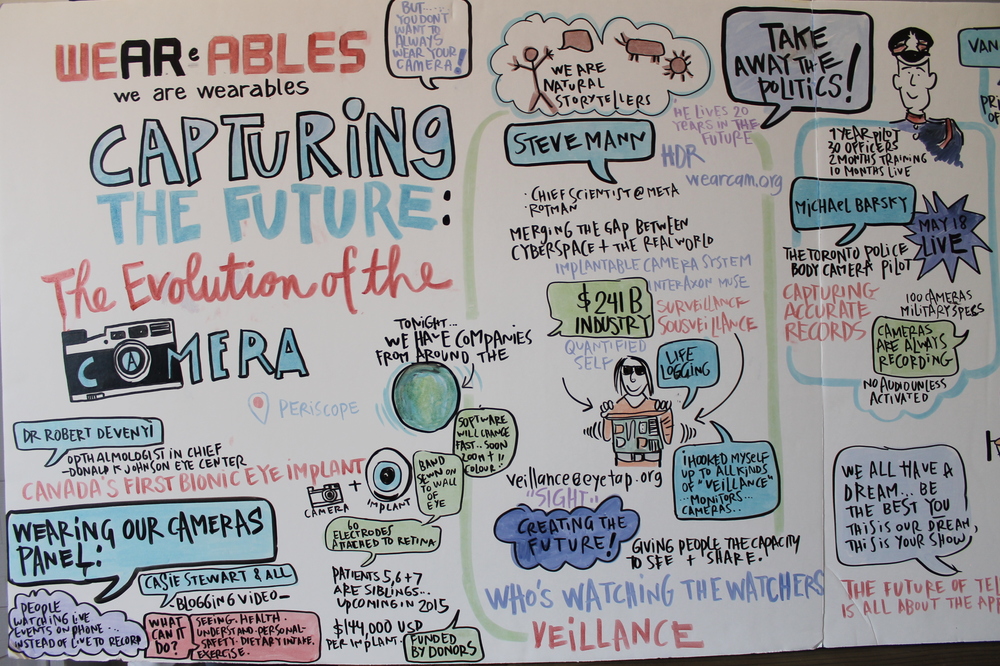 WEAR•ABLES
we are wearables
CAPTURING
THE FUTURE:
The Evolution of the
CAMERA
BUT...
YOU DONT
WANT TO
ALWAYS
WEAR YOUR
CAMERA!
PERISCOPE
TONIGHT...
WE HAVE COMPANIES
FROM AROUND THE
DR ROBERT DEVENYI
OPTHALMOLOGIST IN CHIEF
-DONALD K JOHNSON EYE CENTER
CANADA'S FIRST BIONIC EYE IMPLANT
CAMERA
+
IMPLANT
SOFTWARE
WILL CHANGE
FAST.. SOON
ZOOM + 
COLOUR..
BAND
SEWN ON
TO WALL
OF
EYE
60
ELECTRODES
ATTACHED TO RETINA.
PATIENTS 5,6+7
ARE SIBLINGS...
UPCOMING IN 2015
$144,000 USD
PER IMPLANT.
FUNDED
BY DONORS
WEARING OUR CAMERAS
PANEL:
CASIE STEWART & ALL
BLOGGING VIDEO-
PEOPLE
WATCHING LIVE
EVENTS ON PHONE...
INSTEAD OF LIVE TO RECORD
WHAT
CAN IT
DO?
SEEING·HEALTH·
UNDERSTAND·PERSONAL·
SAFETY·DIETARY INTAKE·
EXERCISE.
WE ARE
NATURAL
STORYTELLERS
STEVE MANN
HE LIVES 20
YEARS IN THE
FUTURE
HDR
wearcam.org
·CHIEF SCIENTIST @ META
·ROTMAN
MERGING THE GAP BETWEEN
CYBERSPACE + THE REAL WORLD
IMPLANTABLE CAMERA SYSTEM
INTERAXON MUSE
$241B
INDUSTRY
SURVEILLANCE
SOUSVEILLANCE
QUANTIFIED
SELF
LIFE
LOGGING
veillance@eyetap.org
"SIGHT.."
I HOOKED MYSELF
UP TO ALL KINDS
OF "VEILLANCE"
...MONITORS...
CAMERAS...
CREATING THE
FUTURE!
GIVING PEOPLE THE CAPACITY
TO SEE + SHARE.
WHO'S WATCHING THE WATCHERS
VEILLANCE
TAKE
AWAY THE
POLITICS!
1 YEAR PILOT
30 OFFICERS
2 MONTHS TRAINING
10 MONTHS LIVE
MICHAEL BARSKY
MAY 18
LIVE
THE TORONTO POLICE
BODY CAMERA PILOT
CAPTURING
ACCURATE
RECORDS
100 CAMERAS
MILITARY SPECS
CAMERAS
ARE ALWAYS
RECORDING
NO AUDIO UNLESS
ACTIVATED
WE ALL HAVE A
DREAM... BE
THE BEST YOU
THIS IS OUR DREAM,
THIS IS YOUR SHOW.
THE FUTURE OF TEL
IS ALL ABOUT THE APP
VAN
PR
OF